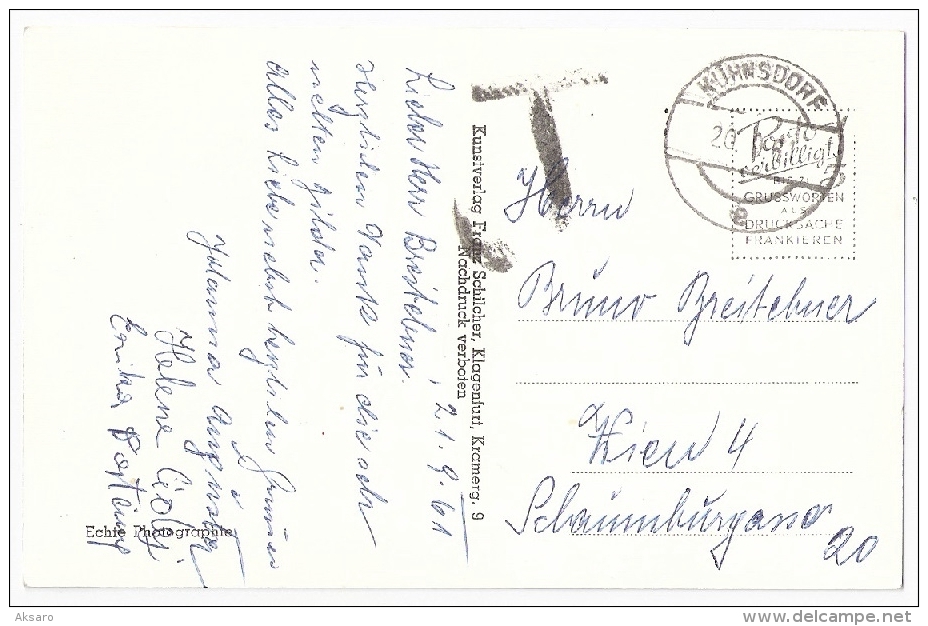 Lieber Herr Breitebner.
21.9.61
Herzlichen Dank für die sch
netten Bilder.
Alles Liebe nebst herzlichen Grüssen
Johanna
Helene
Erika
Echte Photographie
Kunstverlag Franz Schilcher, Klagenfurt, Kramerg. 9
Nachdruck verboten
T
KÜHNSDORF
20
Porto
verbilligt
GRUSSWORTEN
ALS
DRUCKSACHE
FRANKIEREN
Herrn
Bruno Breitebner
Wien 4
Schaumburgasse
20
Aksaro
delcampe.net